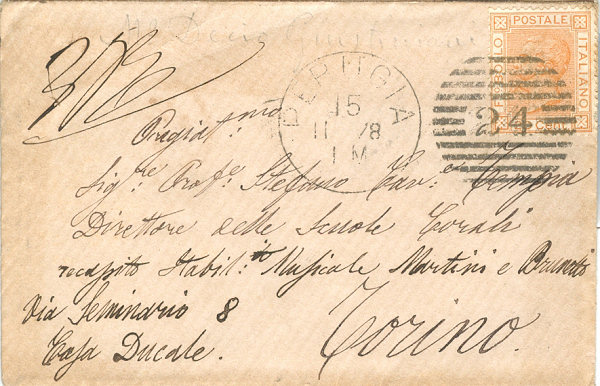 POSTALE
FRANCOBOLLO
ITALIANO
PERUGIA
15
11 78
1 M
24
Pregiat.mo
Sig.re Prof.e Stefano Cav.e Tempia
Direttore delle Scuole Corali
recapito Stabil.to Musicale Martini e Brunetto
Via Seminario 8
Casa Ducale.
Torino.